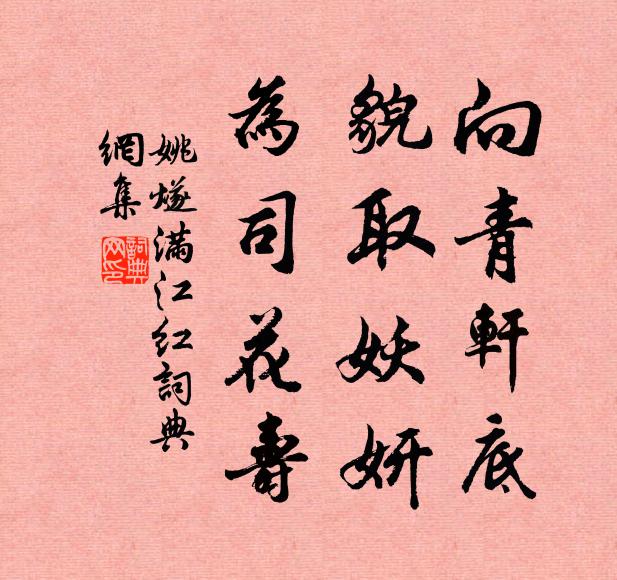 向青軒底
貌取妖妍
為司花壽
姚燧滿江红詞典
網集
詞典
网印